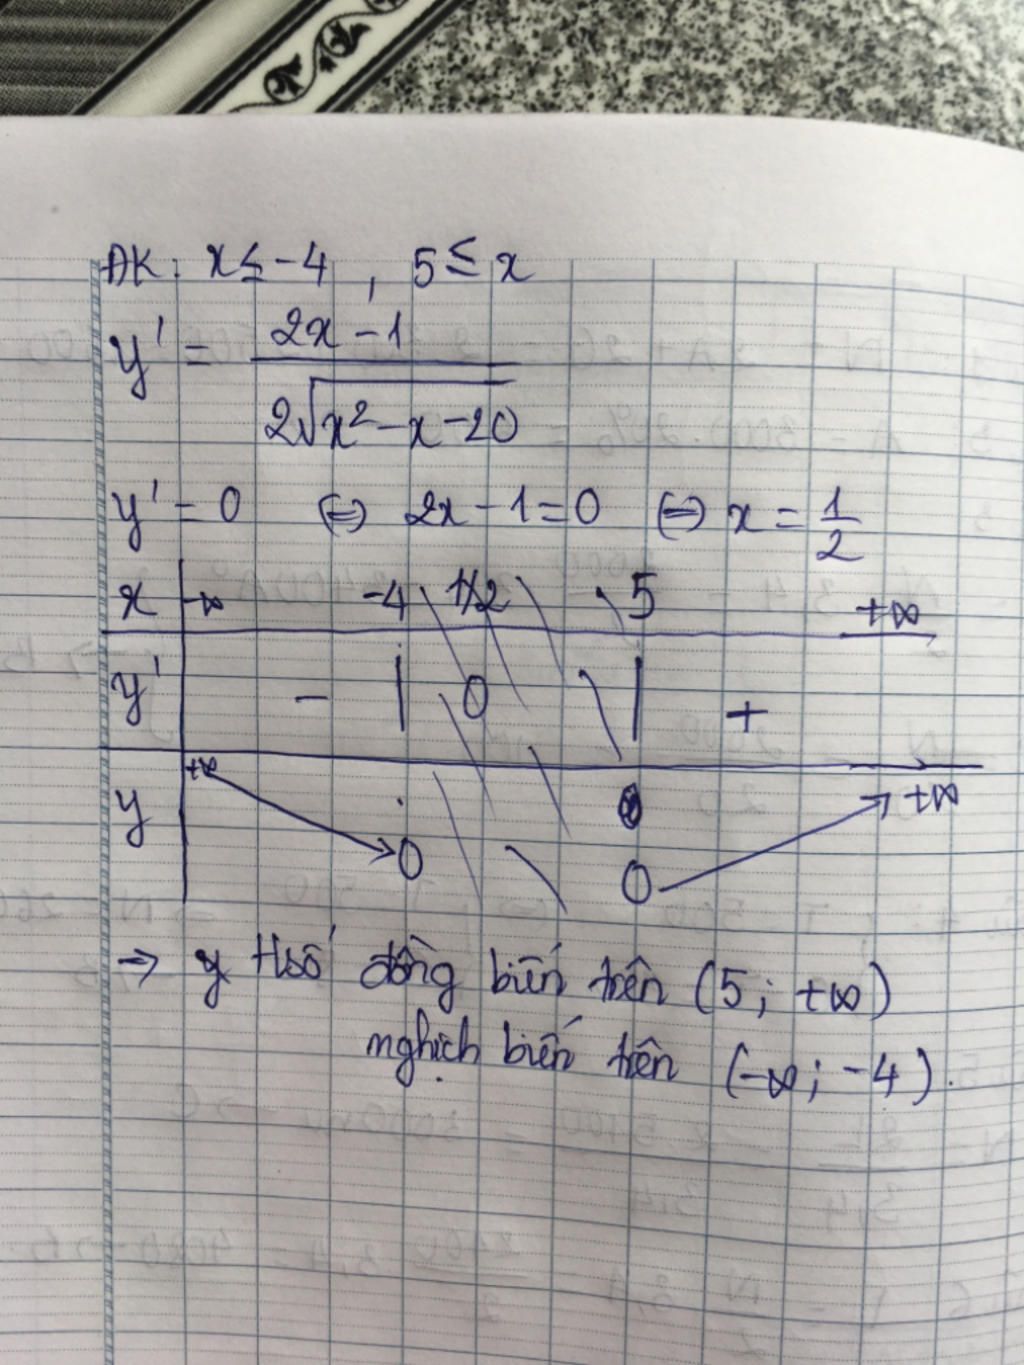 ĐK: x ≤ -4 , 5 ≤ x
y' = (2x - 1) / (2√(x² - x - 20))
y' = 0 ⇔ 2x - 1 = 0 ⇔ x = 1/2
x -∞ -4 1/2 5 +∞
y' - | 0 | +
y +∞ 0 0 +∞
→ y Hsố đồng biến trên (5; +∞)
nghịch biến trên (-∞; -4).